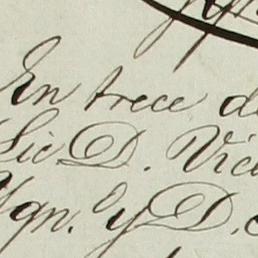 En trece d
Lic D. Vic
Ygn.º y D.